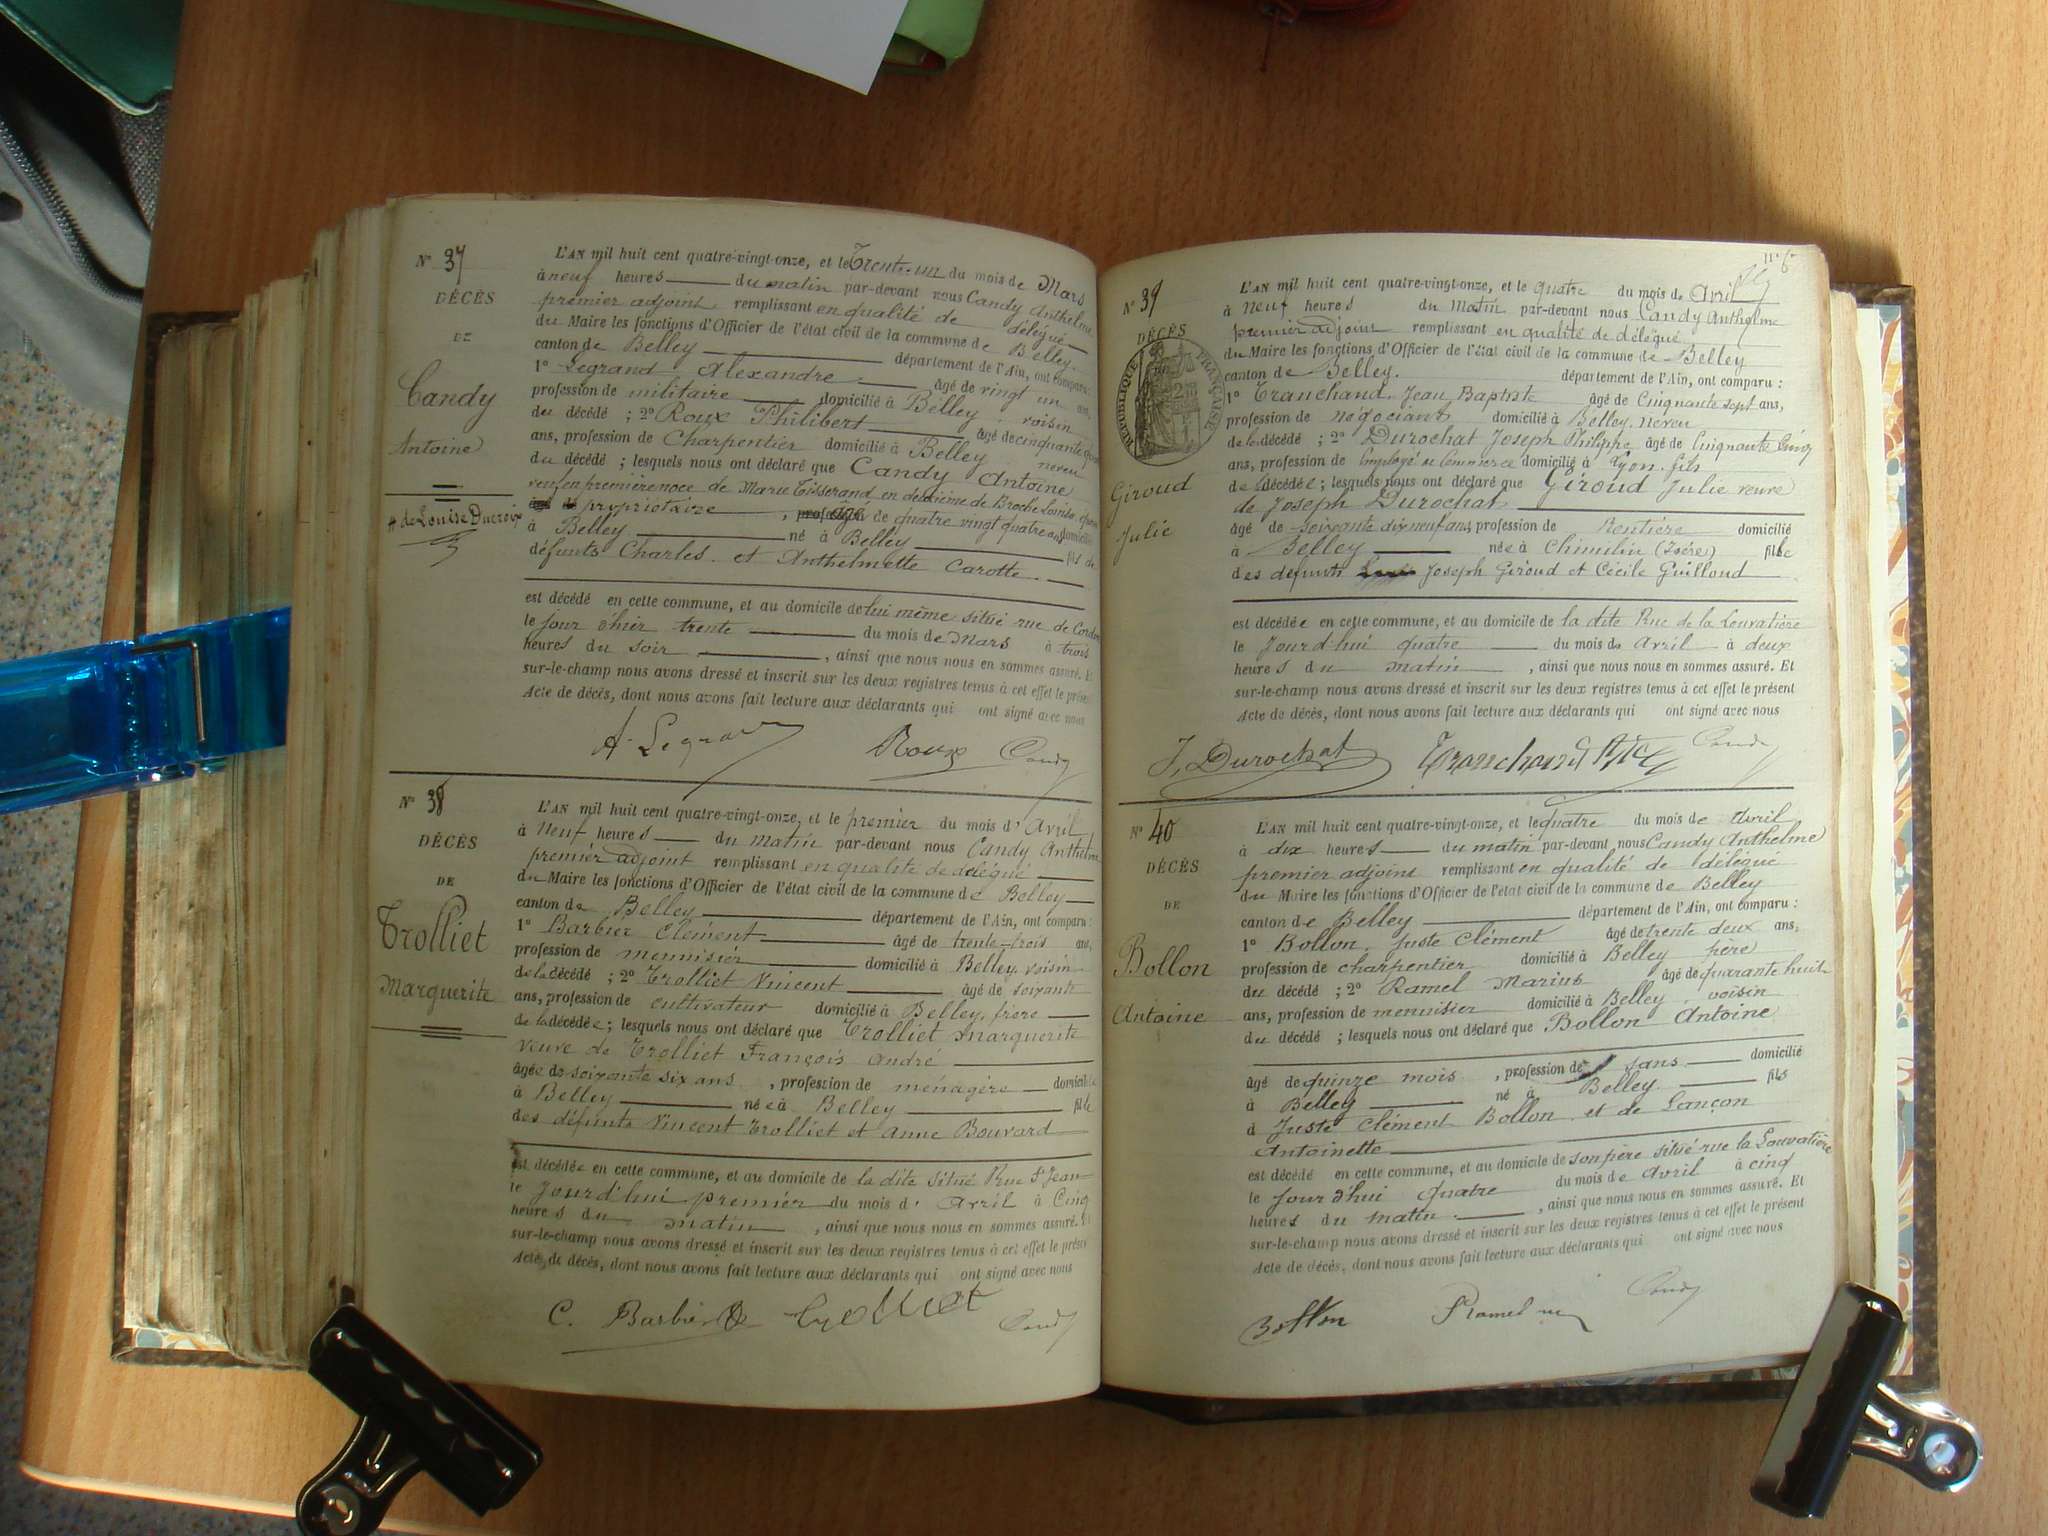 N° 37
DÉCÈS
DE
Candy
Antoine
# de Louise Ducroix
L'AN mil huit cent quatre-vingt-onze, et le Trente-un du mois de Mars
à neuf heures du matin par-devant nous Candy Anthelme
premier adjoint remplissant en qualité de délégué
du Maire les fonctions d'Officier de l'état civil de la commune de Belley
canton de Belley département de l'Ain, ont comparu :
1° Legrand Alexandre âgé de vingt un ans,
profession de militaire domicilié à Belley voisin
du décédé ; 2° Roux Philibert âgé de cinquante
ans, profession de Charpentier domicilié à Belley neveu
du décédé ; lesquels nous ont déclaré que Candy Antoine
veuf en première noce de Marie Tisserand en deuxième de Broche Louise
propriétaire de quatre vingt quatre ans domicilié
à Belley né à Belley fils de
défunts Charles et Anthelmette Carotte
est décédé en cette commune, et au domicile de lui même situé rue de
le jour d'hier trente du mois de Mars à trois
heures du soir , ainsi que nous nous en sommes assuré. Et
sur-le-champ nous avons dressé et inscrit sur les deux registres tenus à cet effet le présent
Acte de décès, dont nous avons fait lecture aux déclarants qui ont signé avec nous
A. Legrand Roux Candy
N° 38
DÉCÈS
DE
Trolliet
Marguerite
L'AN mil huit cent quatre-vingt-onze, et le premier du mois d' Avril
à Neuf heures du matin par-devant nous Candy Anthelme
premier adjoint remplissant en qualité de délégué
du Maire les fonctions d'Officier de l'état civil de la commune de Belley
canton de Belley département de l'Ain, ont comparu :
1° Barbier Clément âgé de trente-trois ans,
profession de menuisier domicilié à Belley voisin
de la décédé ; 2° Trolliet Vincent âgé de soixante
ans, profession de cultivateur domicilié à Belley, frère
de la décédée ; lesquels nous ont déclaré que Trolliet Marguerite
veuve de Trolliet François André
âgée de soixante six ans , profession de ménagère domicilié
à Belley née à Belley fille
des défunts Vincent Trolliet et Anne Bouvard
est décédée en cette commune, et au domicile de la dite situé Rue St Jean
le Jourd'hui premier du mois d' Avril à Cinq
heures du matin , ainsi que nous nous en sommes assuré. Et
sur-le-champ nous avons dressé et inscrit sur les deux registres tenus à cet effet le présent
Acte de décès, dont nous avons fait lecture aux déclarants qui ont signé avec nous
C. Barbier Trolliet Candy
N° 39
DÉCÈS
RÉPUBLIQUE FRANÇAISE
Giroud
Julie
L'AN mil huit cent quatre-vingt-onze, et le quatre du mois de Avril
à neuf heures du Matin par-devant nous Candy Anthelme
premier adjoint remplissant en qualité de délégué
du Maire les fonctions d'Officier de l'état civil de la commune de Belley
canton de Belley. département de l'Ain, ont comparu :
1° Tranchand Jean Baptiste âgé de Cinquante sept ans,
profession de négociant domicilié à Belley. neveu
de la décédé ; 2° Durochat Joseph Philippe âgé de Cinquante Cinq
ans, profession de Employé de Commerce domicilié à Lyon fils
de la décédée ; lesquels nous ont déclaré que Giroud Julie veuve
de Joseph Durochat
âgé de soixante dix neuf ans, profession de Rentière domicilié
à Belley née à Chimilin (Isère) fille
des défunts Joseph Giroud et Cécile Guilloud
est décédée en cette commune, et au domicile de la dite Rue de la Louvatière
le Jourd'hui quatre du mois de Avril à deux
heures du matin , ainsi que nous nous en sommes assuré. Et
sur-le-champ nous avons dressé et inscrit sur les deux registres tenus à cet effet le présent
Acte de décès, dont nous avons fait lecture aux déclarants qui ont signé avec nous
J. Durochat Tranchand Candy
N° 40
DÉCÈS
DE
Bollon
Antoine
L'AN mil huit cent quatre-vingt-onze, et le quatre du mois de Avril
à dix heures du matin par-devant nous Candy Anthelme
premier adjoint remplissant en qualité de délégué
du Maire les fonctions d'Officier de l'état civil de la commune de Belley
canton de Belley département de l'Ain, ont comparu :
1° Bollon Juste Clément âgé de trente deux ans,
profession de charpentier domicilié à Belley père
du décédé ; 2° Ramel Marius âgé de quarante huit
ans, profession de menuisier domicilié à Belley voisin
du décédé ; lesquels nous ont déclaré que Bollon Antoine
âgé de quinze mois , profession de sans domicilié
à Belley né à Belley fils
d Juste Clément Bollon et de Lançon
Antoinette
est décédé en cette commune, et au domicile de son père situé rue la Louvatière
le Jourd'hui quatre du mois de Avril à cinq
heures du matin , ainsi que nous nous en sommes assuré. Et
sur-le-champ nous avons dressé et inscrit sur les deux registres tenus à cet effet le présent
Acte de décès, dont nous avons fait lecture aux déclarants qui ont signé avec nous
Bollon Ramel Candy